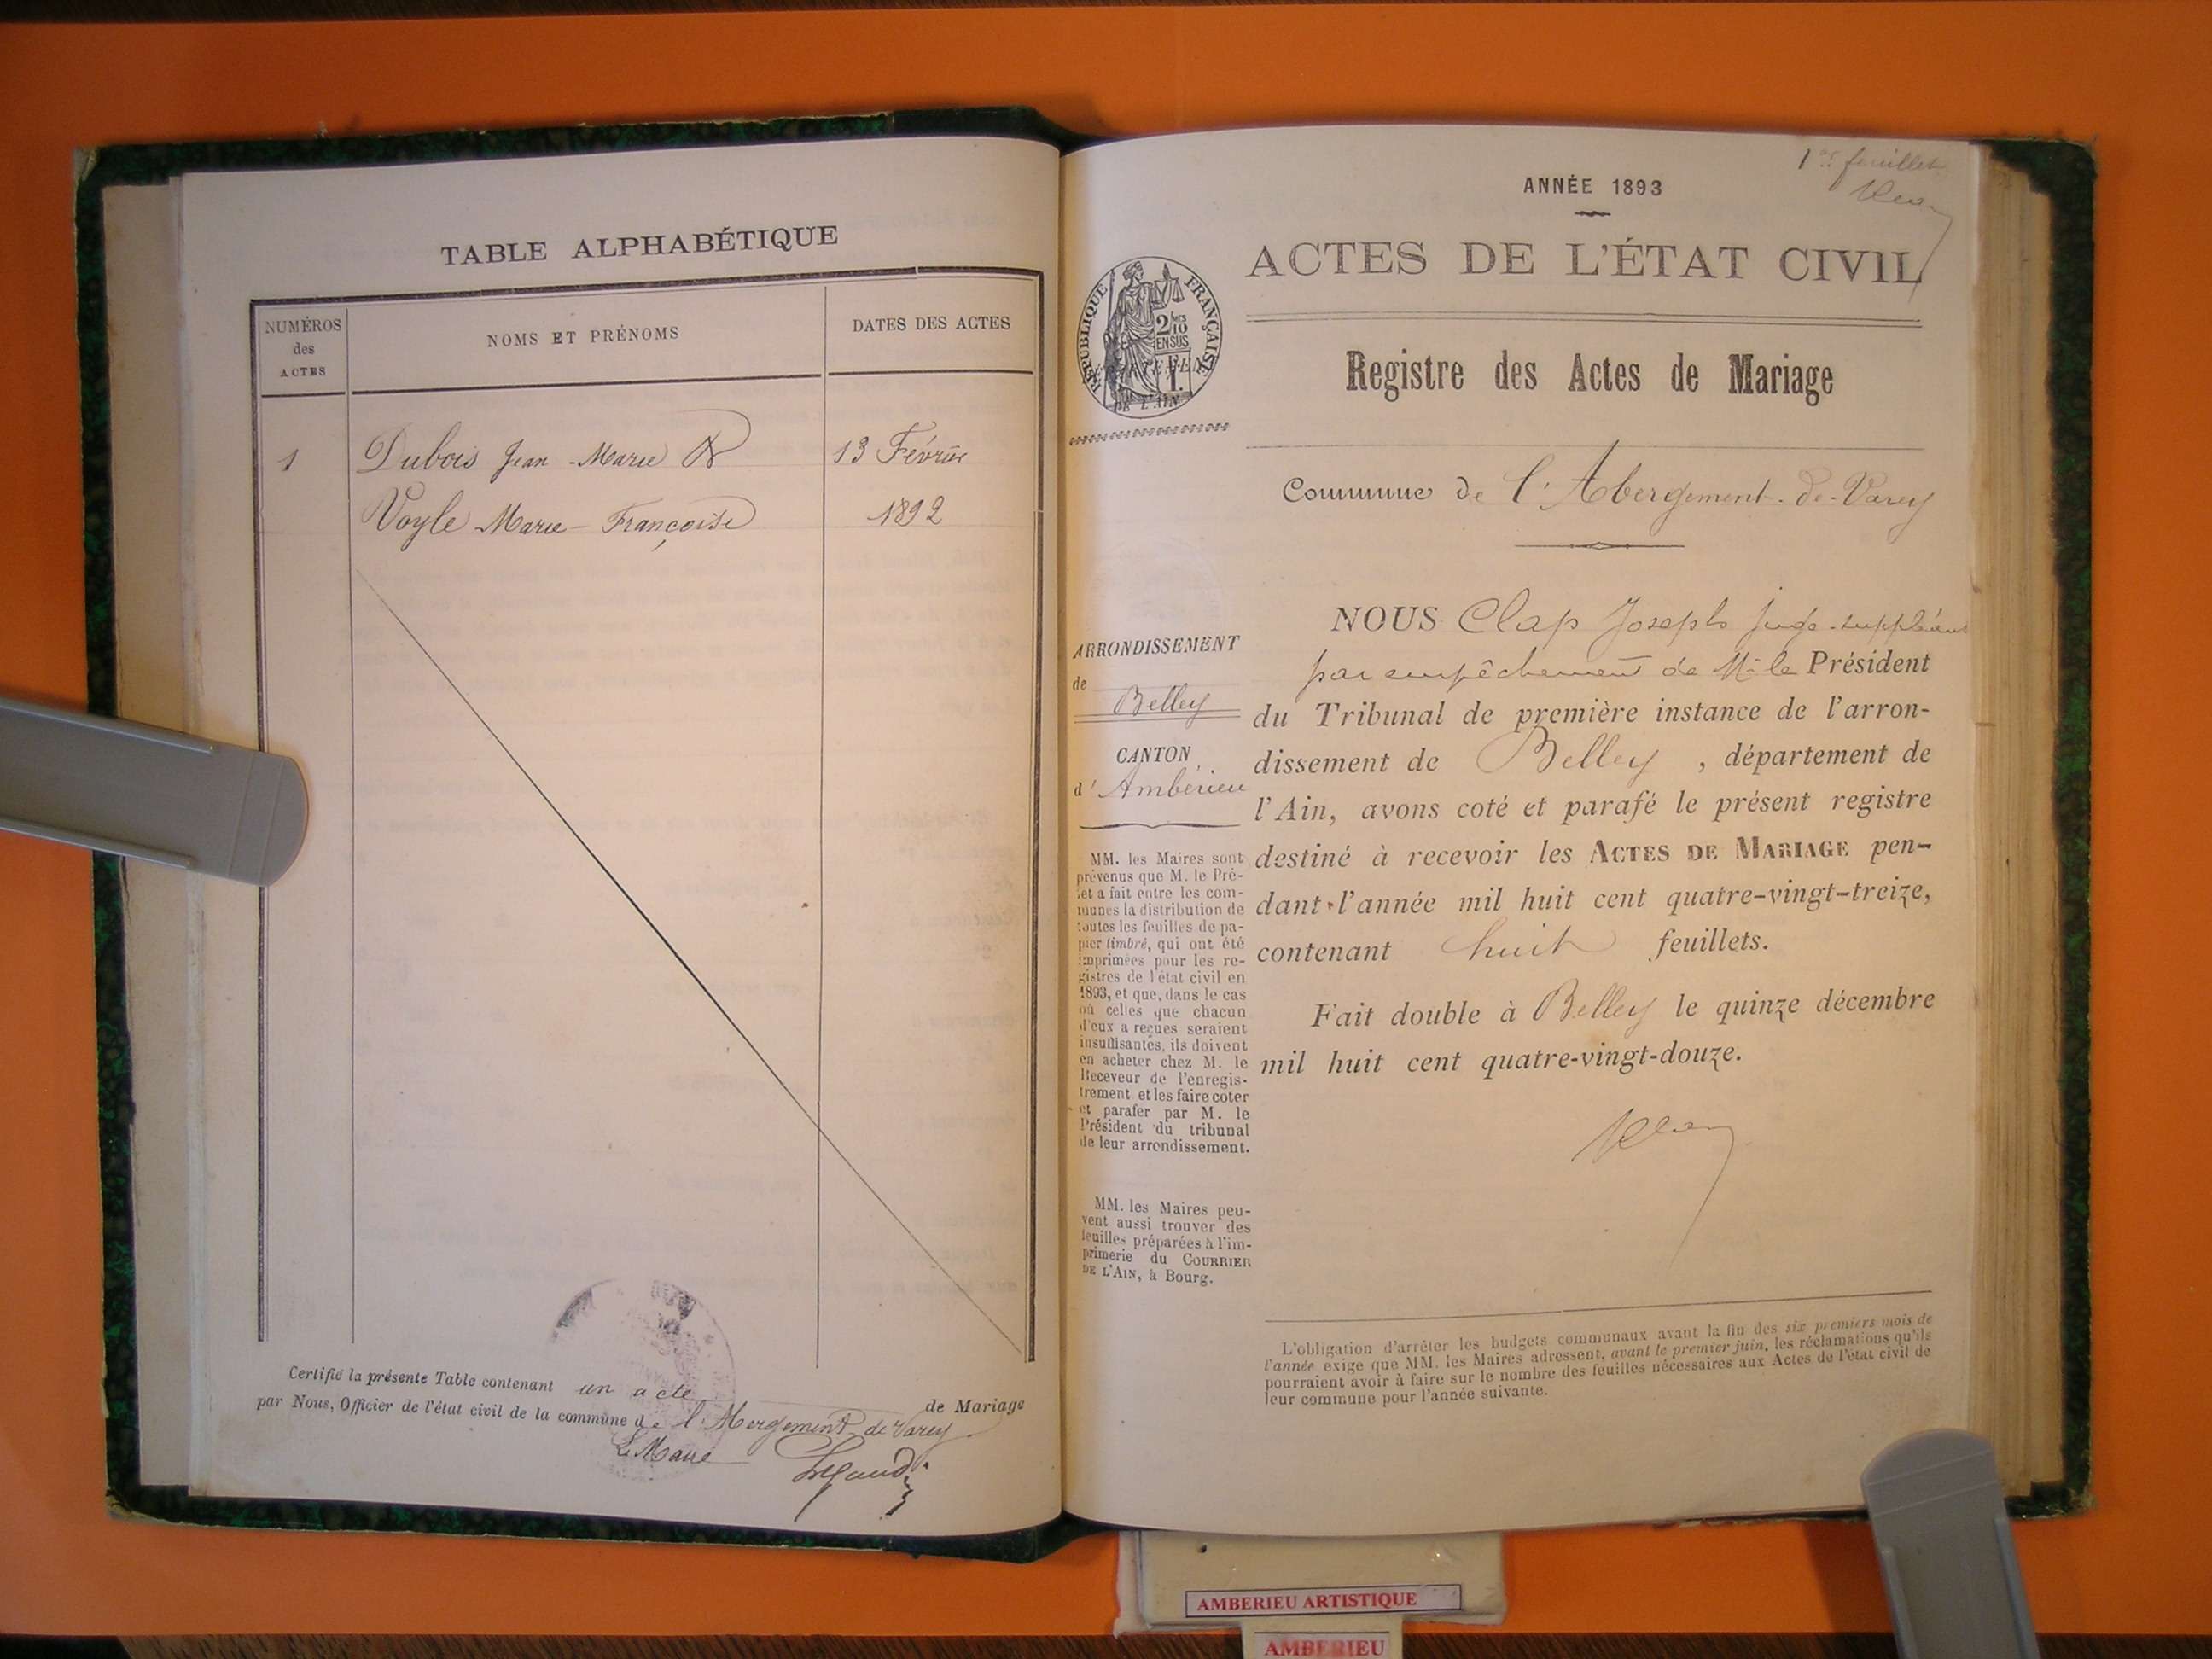 TABLE ALPHABÉTIQUE
NUMÉROS
des
ACTES
NOMS ET PRÉNOMS
DATES DES ACTES
1
Dubois Jean-Marie &
13 Février
Voyle Marie-Françoise
1892
Certifié la présente Table contenant un acte de Mariage
par Nous, Officier de l'état civil de la commune de l'Abergement-de-Varey
Le Maire
1er feuillet
ANNÉE 1893
ACTES DE L'ÉTAT CIVIL
RÉPUBLIQUE FRANÇAISE
2/10
EN SUS
DE L'AIN
Registre des Actes de Mariage
Commune de l'Abergement-de-Varey
ARRONDISSEMENT
de
Belley
CANTON
d'Ambérieu
MM. les Maires sont
prévenus que M. le Pré-
fet a fait entre les com-
munes la distribution de
toutes les feuilles de pa-
pier timbré, qui ont été
imprimées pour les re-
gistres de l'état civil en
1893, et que, dans le cas
où celles que chacun
d'eux a reçues seraient
insuffisantes, ils doivent
en acheter chez M. le
Receveur de l'enregis-
trement et les faire coter
et parafer par M. le
Président du tribunal
de leur arrondissement.
MM. les Maires peu-
vent aussi trouver des
feuilles préparées à l'im-
primerie du COURRIER
DE L'AIN, à Bourg.
NOUS Clap Joseph juge-suppléant
par empêchement de Mr le Président
du Tribunal de première instance de l'arron-
dissement de Belley , département de
l'Ain, avons coté et parafé le présent registre
destiné à recevoir les ACTES DE MARIAGE pen-
dant l'année mil huit cent quatre-vingt-treize,
contenant huit feuillets.
Fait double à Belley le quinze décembre
mil huit cent quatre-vingt-douze.
L'obligation d'arrêter les budgets communaux avant la fin des six premiers mois de
l'année exige que MM. les Maires adressent, avant le premier juin, les réclamations qu'ils
pourraient avoir à faire sur le nombre des feuilles nécessaires aux Actes de l'état civil de
leur commune pour l'année suivante.
AMBERIEU ARTISTIQUE
AMBERIEU